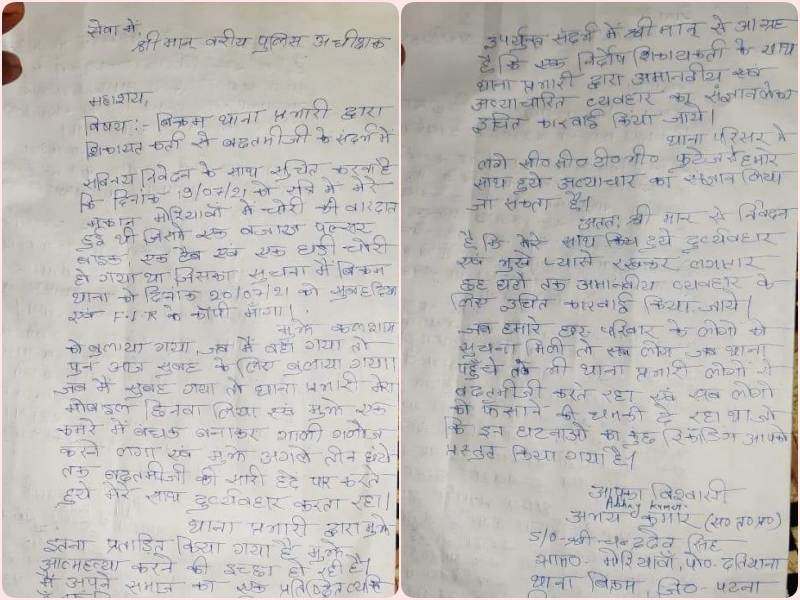 सेवा में,
श्री मान् वरीय पुलिस अधीक्षक
महाशय,
विषय:- बिक्रम थाना प्रभारी द्वारा
शिकायत कर्ता से बदतमीजी के संदर्भ में
सविनय निवेदन के साथ सूचित करना है
कि दिनांक 19/07/21 को रात्रि में मेरे
मकान मोरियावाँ में चोरी की वारदात
हुई थी जिसमें एक बजाज पल्सर
बाइक, एक टैब एवं एक घड़ी चोरी
हो गया था जिसका सूचना मैं बिक्रम
थाना को दिनांक 20/07/21 को सुबह दिया
एवं F.I.R के कॉपी मांगा।
मुझे कल शाम
को बुलाया गया, जब मैं वहाँ गया तो
पुनः आज सुबह के लिए बुलाया गया।
जब मैं सुबह गया तो थाना प्रभारी मेरा
मोबाइल छिनवा लिया एवं मुझे एक
कमरे में बंधक बनाकर गाली गलौज
करने लगा एवं मुझे अगले तीन घंटे
तक बदतमीजी की सारी हदें पार करते
हुये मेरे साथ दुर्व्यवहार करता रहा।
थाना प्रभारी द्वारा मुझे
इतना प्रताड़ित किया गया है मुझे
आत्महत्या करने की इच्छा हो रही है।
मैं अपने समाज का एक प्रतिष्ठित व्यक्ति
उपर्युक्त संदर्भ में श्री मान् से आग्रह
है कि एक निर्दोष शिकायतकर्ता के साथ
थाना प्रभारी द्वारा अमानवीय एवं
अत्याचारित व्यवहार का संज्ञान लेकर
उचित कारवाई किया जाये।
थाना परिसर में
लगे सी० सी० टी० भी० फुटेज से हमारे
साथ हुये अत्याचार का संज्ञान लिया
जा सकता है।
अतः श्री मान् से निवेदन
है कि मेरे साथ किये हुये दुर्व्यवहार
एवं भुखे प्यासे रखकर लगातार
छह घंटो तक अमानवीय व्यवहार के
लिए उचित कारवाई किया जाये।
जब हमारे घर परिवार के लोगों को
सूचना मिली तो सब लोग जब थाना
पहुँचे तब भी थाना प्रभारी लोगों से
बदतमीजी करते रहा एवं सब लोगों
को फँसाने की धमकी दे रहा था जो
कि इन घटनाओं का कुछ रिकॉर्डिंग आपको
प्रस्तुत किया गया है।
आपका विश्वासी
Abhay Kumar
अभय कुमार
S/o- श्री चन्द्रदेव सिंह
ग्राम०- मोरियावाँ, पो०- दतियाना
थाना बिक्रम, जि०- पटना